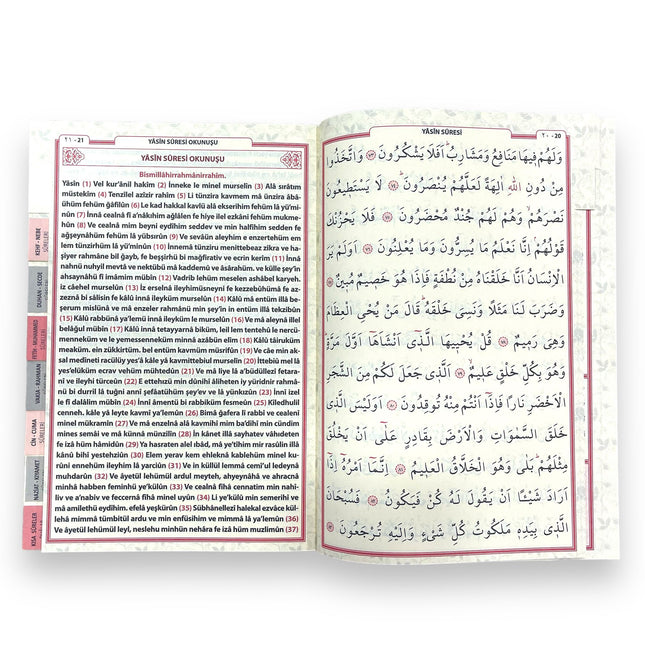 YÂSÎN SÛRESİ
٢٠ - 20
وَلَهُمْ فِيهَا مَنَافِعُ وَمَشَارِبُ اَفَلَا يَشْكُرُونَ ﴿٧٣﴾ وَاتَّخَذُوا
مِنْ دُونِ اللّٰهِ اٰلِهَةً لَعَلَّهُمْ يُنْصَرُونَ ﴿٧٤﴾ لَا يَسْتَطِيعُونَ
نَصْرَهُمْ وَهُمْ لَهُمْ جُنْدٌ مُحْضَرُونَ ﴿٧٥﴾ فَلَا يَحْزُنْكَ
قَوْلُهُمْ اِنَّا نَعْلَمُ مَا يُسِرُّونَ وَمَا يُعْلِنُونَ ﴿٧٦﴾ اَوَلَمْ يَرَ
الْاِنْسَانُ اَنَّا خَلَقْنَاهُ مِنْ نُطْفَةٍ فَاِذَا هُوَ خَصِيمٌ مُبِينٌ ﴿٧٧﴾
وَضَرَبَ لَنَا مَثَلًا وَنَسِيَ خَلْقَهُ قَالَ مَنْ يُحْيِ الْعِظَامَ
وَهِيَ رَمِيمٌ ﴿٧٨﴾ قُلْ يُحْيِيهَا الَّذِي اَنْشَاَهَا اَوَّلَ مَرَّةٍ
وَهُوَ بِكُلِّ خَلْقٍ عَلِيمٌ ﴿٧٩﴾ اَلَّذِي جَعَلَ لَكُمْ مِنَ الشَّجَرِ
الْاَخْضَرِ نَارًا فَاِذَا اَنْتُمْ مِنْهُ تُوقِدُونَ ﴿٨٠﴾ اَوَلَيْسَ الَّذِي
خَلَقَ السَّمٰوَاتِ وَالْاَرْضَ بِقَادِرٍ عَلٰى اَنْ يَخْلُقَ
مِثْلَهُمْ بَلٰى وَهُوَ الْخَلَّاقُ الْعَلِيمُ ﴿٨١﴾ اِنَّمَا اَمْرُهُ اِذَا
اَرَادَ شَيْـًٔا اَنْ يَقُولَ لَهُ كُنْ فَيَكُونُ ﴿٨٢﴾ فَسُبْحَانَ
الَّذِي بِيَدِهِ مَلَكُوتُ كُلِّ شَيْءٍ وَاِلَيْهِ تُرْجَعُونَ ﴿٨٣﴾
٢١ - 21
YÂSÎN SÛRESİ OKUNUŞU
YÂSÎN SÛRESİ OKUNUŞU
Bismillâhirrahmânirrahîm.
Yâsîn (1) Vel kur'ânil hakîm (2) İnneke le minel murselîn (3) Alâ sırâtım
müstekîm (4) Tenzîlel azîzir rahîm (5) Li tünzira kavmem mâ ünzira âbâ-
ühüm fehüm ğâfilûn (6) Le kad hakkal kavlü alâ ekserihim fehüm lâ yü'mi-
nûn (7) İnnâ cealnâ fî a'nâkıhim ağlâlen fe hiye ilel ezkâni fehüm mukme-
hûn (8) Ve cealnâ mim beyni eydîhim seddev ve min halfihim sedden fe
ağşeynâhüm fehüm lâ yübsırûn (9) Ve sevâün aleyhim e enzertehüm em
lem tünzirhüm lâ yü'minûn (10) İnnemâ tünziru menittebeaz zikra ve ha-
şiyer rahmâne bil ğayb, fe beşşirhü bi mağfirativ ve ecrin kerîm (11) İnnâ
nahnü nuhyil mevtâ ve nektübü mâ kaddemû ve âsârahüm, ve külle şey'in
ahsaynâhü fî imâmim mübîn (12) Vadrib lehüm meselen ashâbel karyeh,
iz câehel murselûn (13) İz erselnâ ileyhimüsneyni fe kezzebûhümâ fe az-
zeznâ bi sâlisin fe kâlû innâ ileyküm murselûn (14) Kâlû mâ entüm illâ be-
şerum mislünâ ve mâ enzeler rahmânü min şey'in in entüm illâ tekzibûn
(15) Kâlû rabbünâ ya'lemü innâ ileyküm le murselûn (16) Ve mâ aleynâ illel
belâğul mubîn (17) Kâlû innâ tetayyernâ biküm, leil lem tentehû le nercü-
menneküm ve le yemessenneküm minnâ azâbün elîm (18) Kâlû tâiruküm
meaküm. ein zükkirtüm. bel entüm kavmüm müsrifûn (19) Ve câe min ak-
sal medîneti racülüy yes'â kâle ya kavmittebiul murselîn (20) İttebiû mel lâ
yes'elüküm ecrav vehüm mühtedûn (21) Ve mâ liye lâ a'büdüllezî fetara-
nî ve ileyhi türceûn (22) E ettehızü min dûnihî âliheten iy yüridnir rahmâ-
nü bi durril lâ tuğni annî şefâatühüm şey'ev ve lâ yünkızûn (23) İnnî izel
le fî dalâlim mübîn (24) İnnî âmentü bi rabbiküm fesmeûn (25) Kîledhulil
cenneh. kâle yâ leyte kavmî ya'lemûn (26) Bimâ ğafera lî rabbî ve cealenî
minel mükramîn (27) Ve mâ enzelnâ alâ kavmihî mim ba'dihî min cündim
mines semâi ve mâ künnâ münzilîn (28) İn kânet illâ sayhatev vâhdeten
fe izâ hüm hâmidûn (29) Ya hasraten alel ıbâd, mâ ye'tîhim mir rasûlin illâ
kânû bihî yestehziûn (30) Elem yerav kem ehleknâ kablehüm minel ku-
rûni ennehüm ileyhim lâ yarciûn (31) Ve in küllül lemmâ cemî'ul ledeynâ
muhdarûn (32) Ve âyetül lehümül ardul meyteh, ahyeynâhâ ve ahracnâ
minhâ habben feminhü ye'külûn (33) Ve cealnâ fîhâ cennatin min nahî-
liv ve a'nabiv ve feccernâ fîhâ minel uyûn (34) Li ye'külû min semerihî ve
mâ amilethü eydîhim. efelâ yeşkürûn (35) Sübhânellezî halekal ezvâce kül-
lehâ mimmâ tümbitül ardu ve min enfüsihim ve mimmâ lâ ya'lemûn (36)
Ve âyetül lehümül leyl, neslehu minhün nehâra fe izâ hüm muzlimûn (37)
KEHF - NEBE
SÛRELERİ
DUHAN - SECDE
SÛRELERİ
FETİH - MUHAMMED
SÛRELERİ
VAKIA - RAHMAN
SÛRELERİ
CİN - CUMA
SÛRELERİ
NAZİAT - KIYAMET
SÛRELERİ
KISA SÛRELER